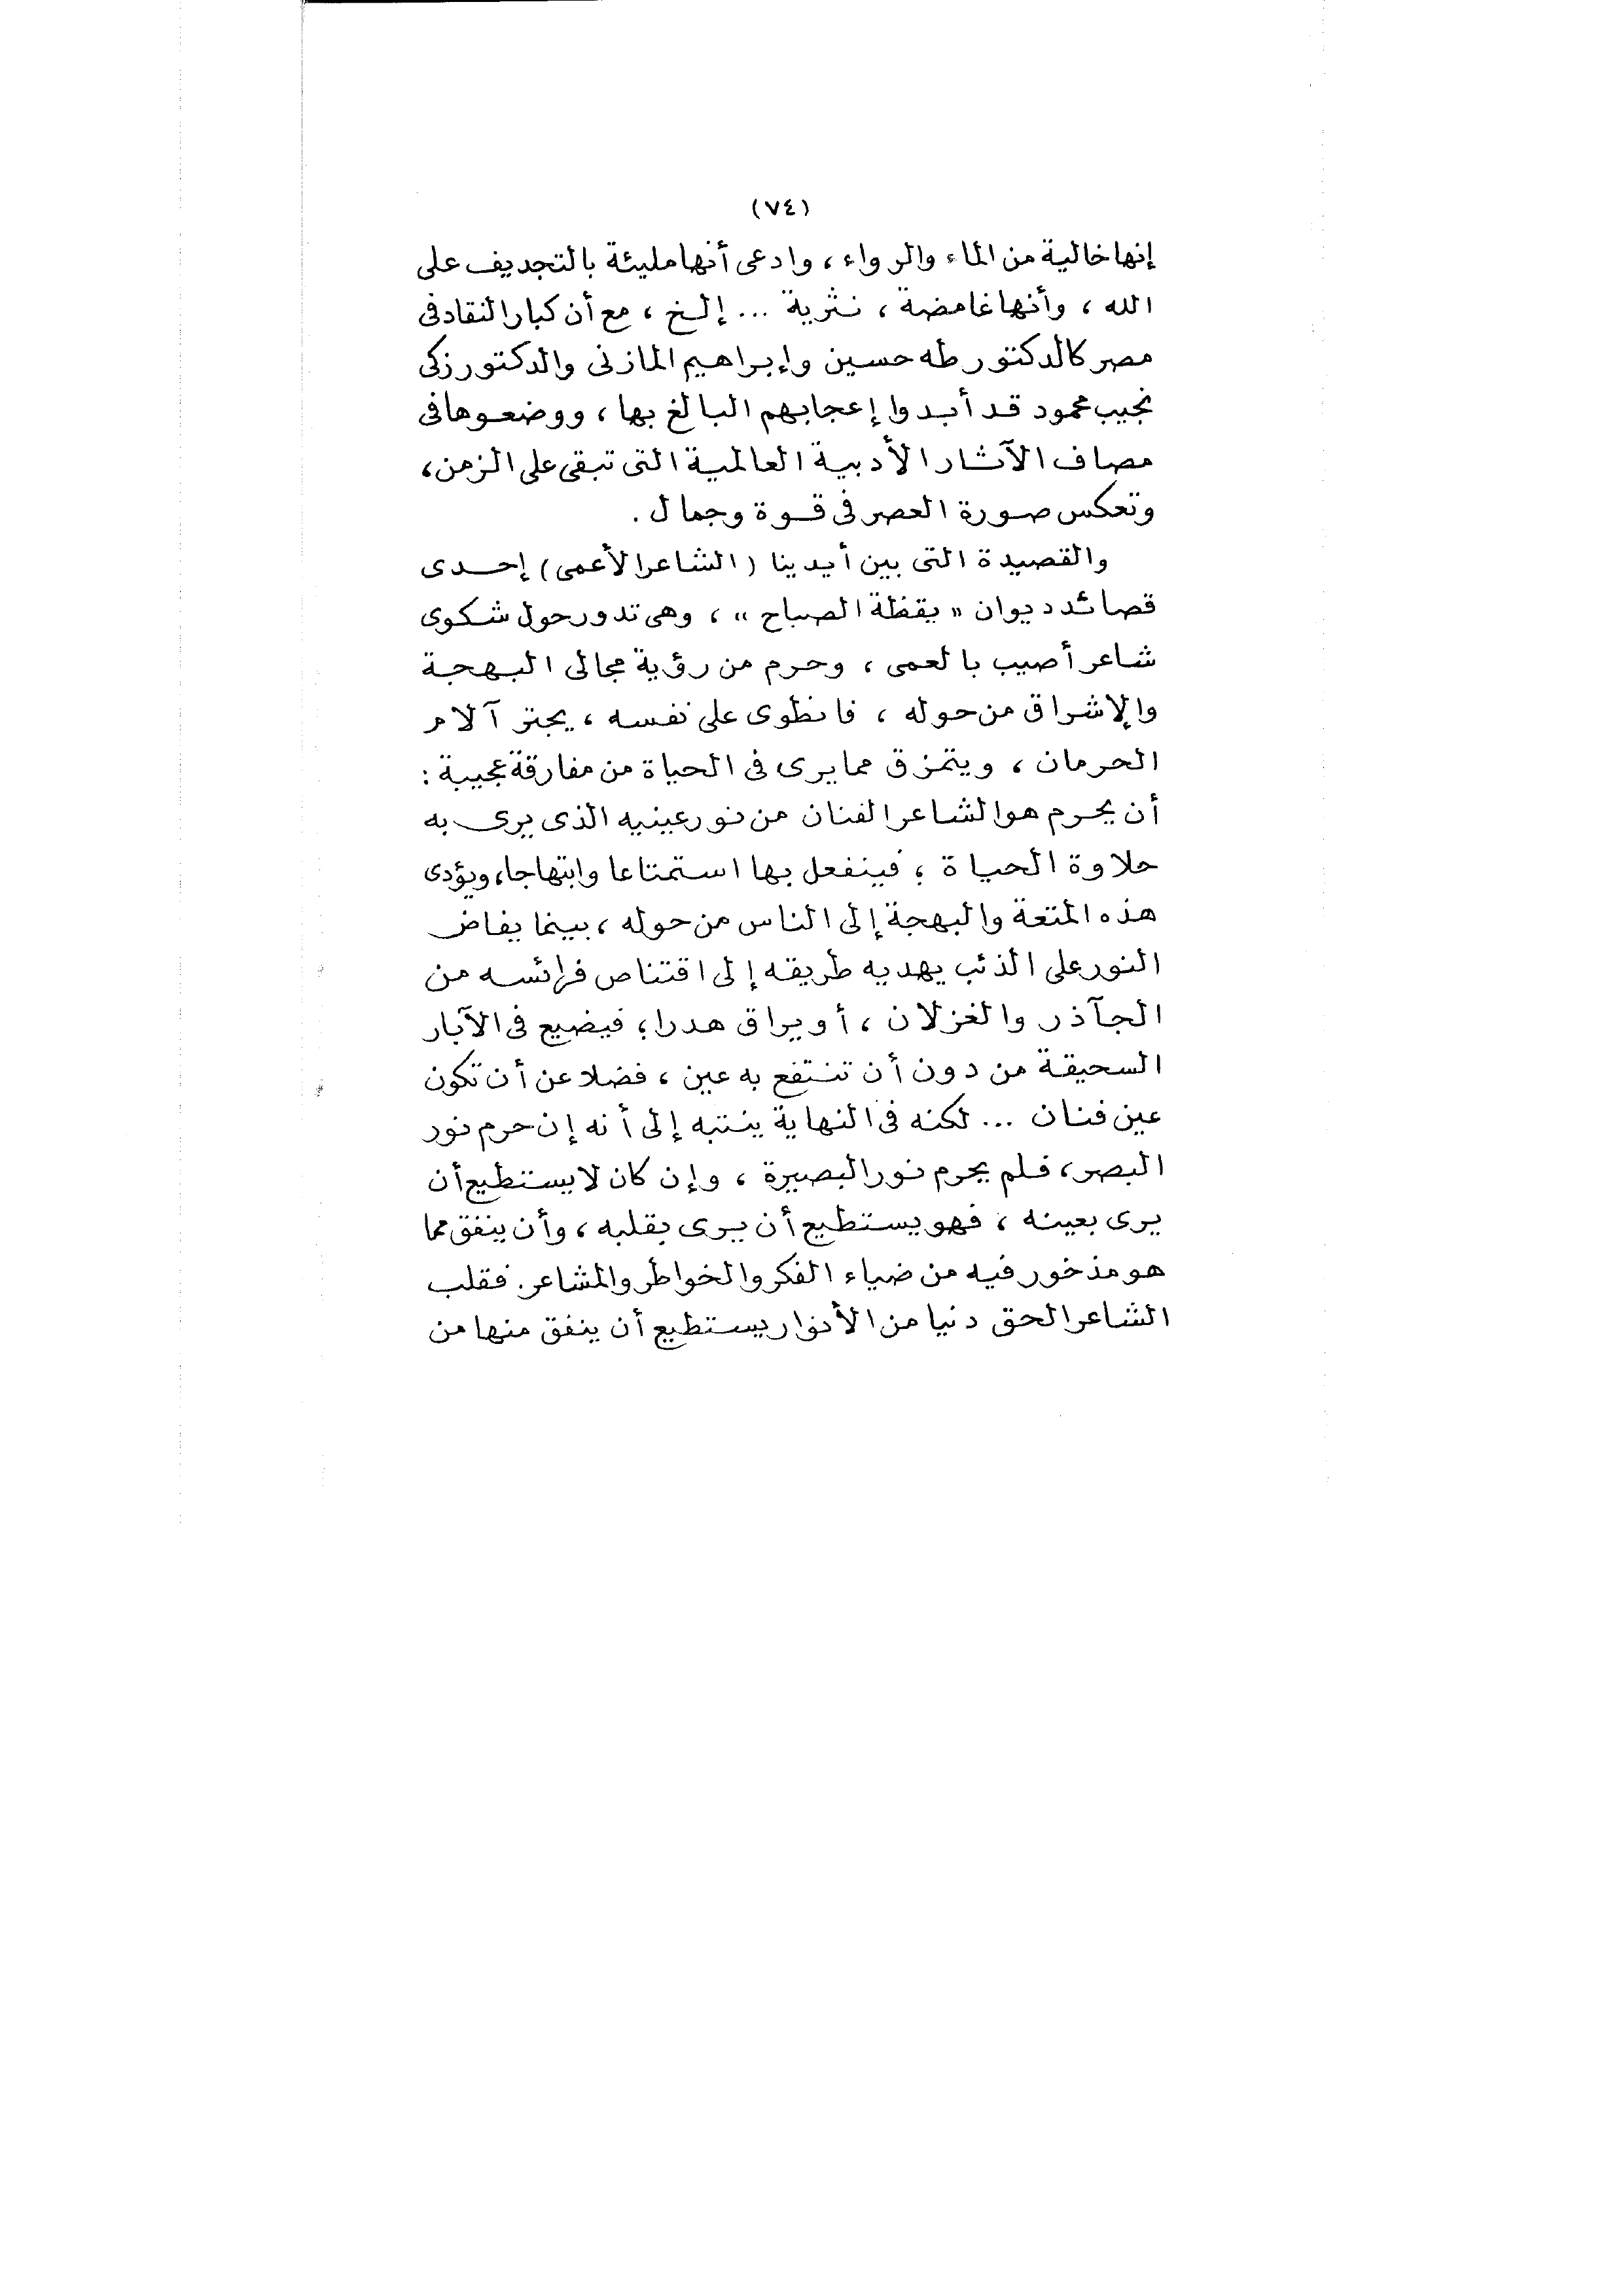 (٧٤)
إنها خالية من الماء والرواء، وادعى أنها مليئة بالتجديف على
الله، وأنها غامضة، نثرية ... إلخ، مع أن كبار النقاد فى
مصر كالدكتور طه حسين وإبراهيم المازنى والدكتور زكى
نجيب محمود قد أبدوا إعجابهم البالغ بها، ووضعوها فى
مصاف الآثار الأدبية العالمية التى تبقى على الزمن،
وتعكس صورة العصر فى قوة وجمال.
والقصيدة التى بين أيدينا (الشاعر الأعمى) إحدى
قصائد ديوان «يقظة الصباح»، وهى تدور حول شكوى
شاعر أصيب بالعمى، وحرم من رؤية مجالى البهجة
والإشراق من حوله، فانطوى على نفسه، يجتر آلام
الحرمان، ويتمزق مما يرى فى الحياة من مفارقة عجيبة:
أن يحرم هو الشاعر الفنان من نور عينيه الذى يرى به
حلاوة الحياة؛ فينفعل بها استمتاعا وابتهاجا، ويؤدى
هذه المتعة والبهجة إلى الناس من حوله، بينما يفاض
النور على الذئب يهديه طريقه إلى اقتناص فرائسه من
الجآذر والغزلان، أو يراق هدرا؛ فيضيع فى الآبار
السحيقة من دون أن تنتفع به عين، فضلا عن أن تكون
عين فنان ... لكنه فى النهاية ينتبه إلى أنه إن حرم نور
البصر، فلم يحرم نور البصيرة، وإن كان لا يستطيع أن
يرى بعينه، فهو يستطيع أن يرى بقلبه، وأن ينفق مما
هو مذخور فيه من ضياء الفكر والخواطر والمشاعر. فقلب
الشاعر الحق دنيا من الأنوار يستطيع أن ينفق منها من